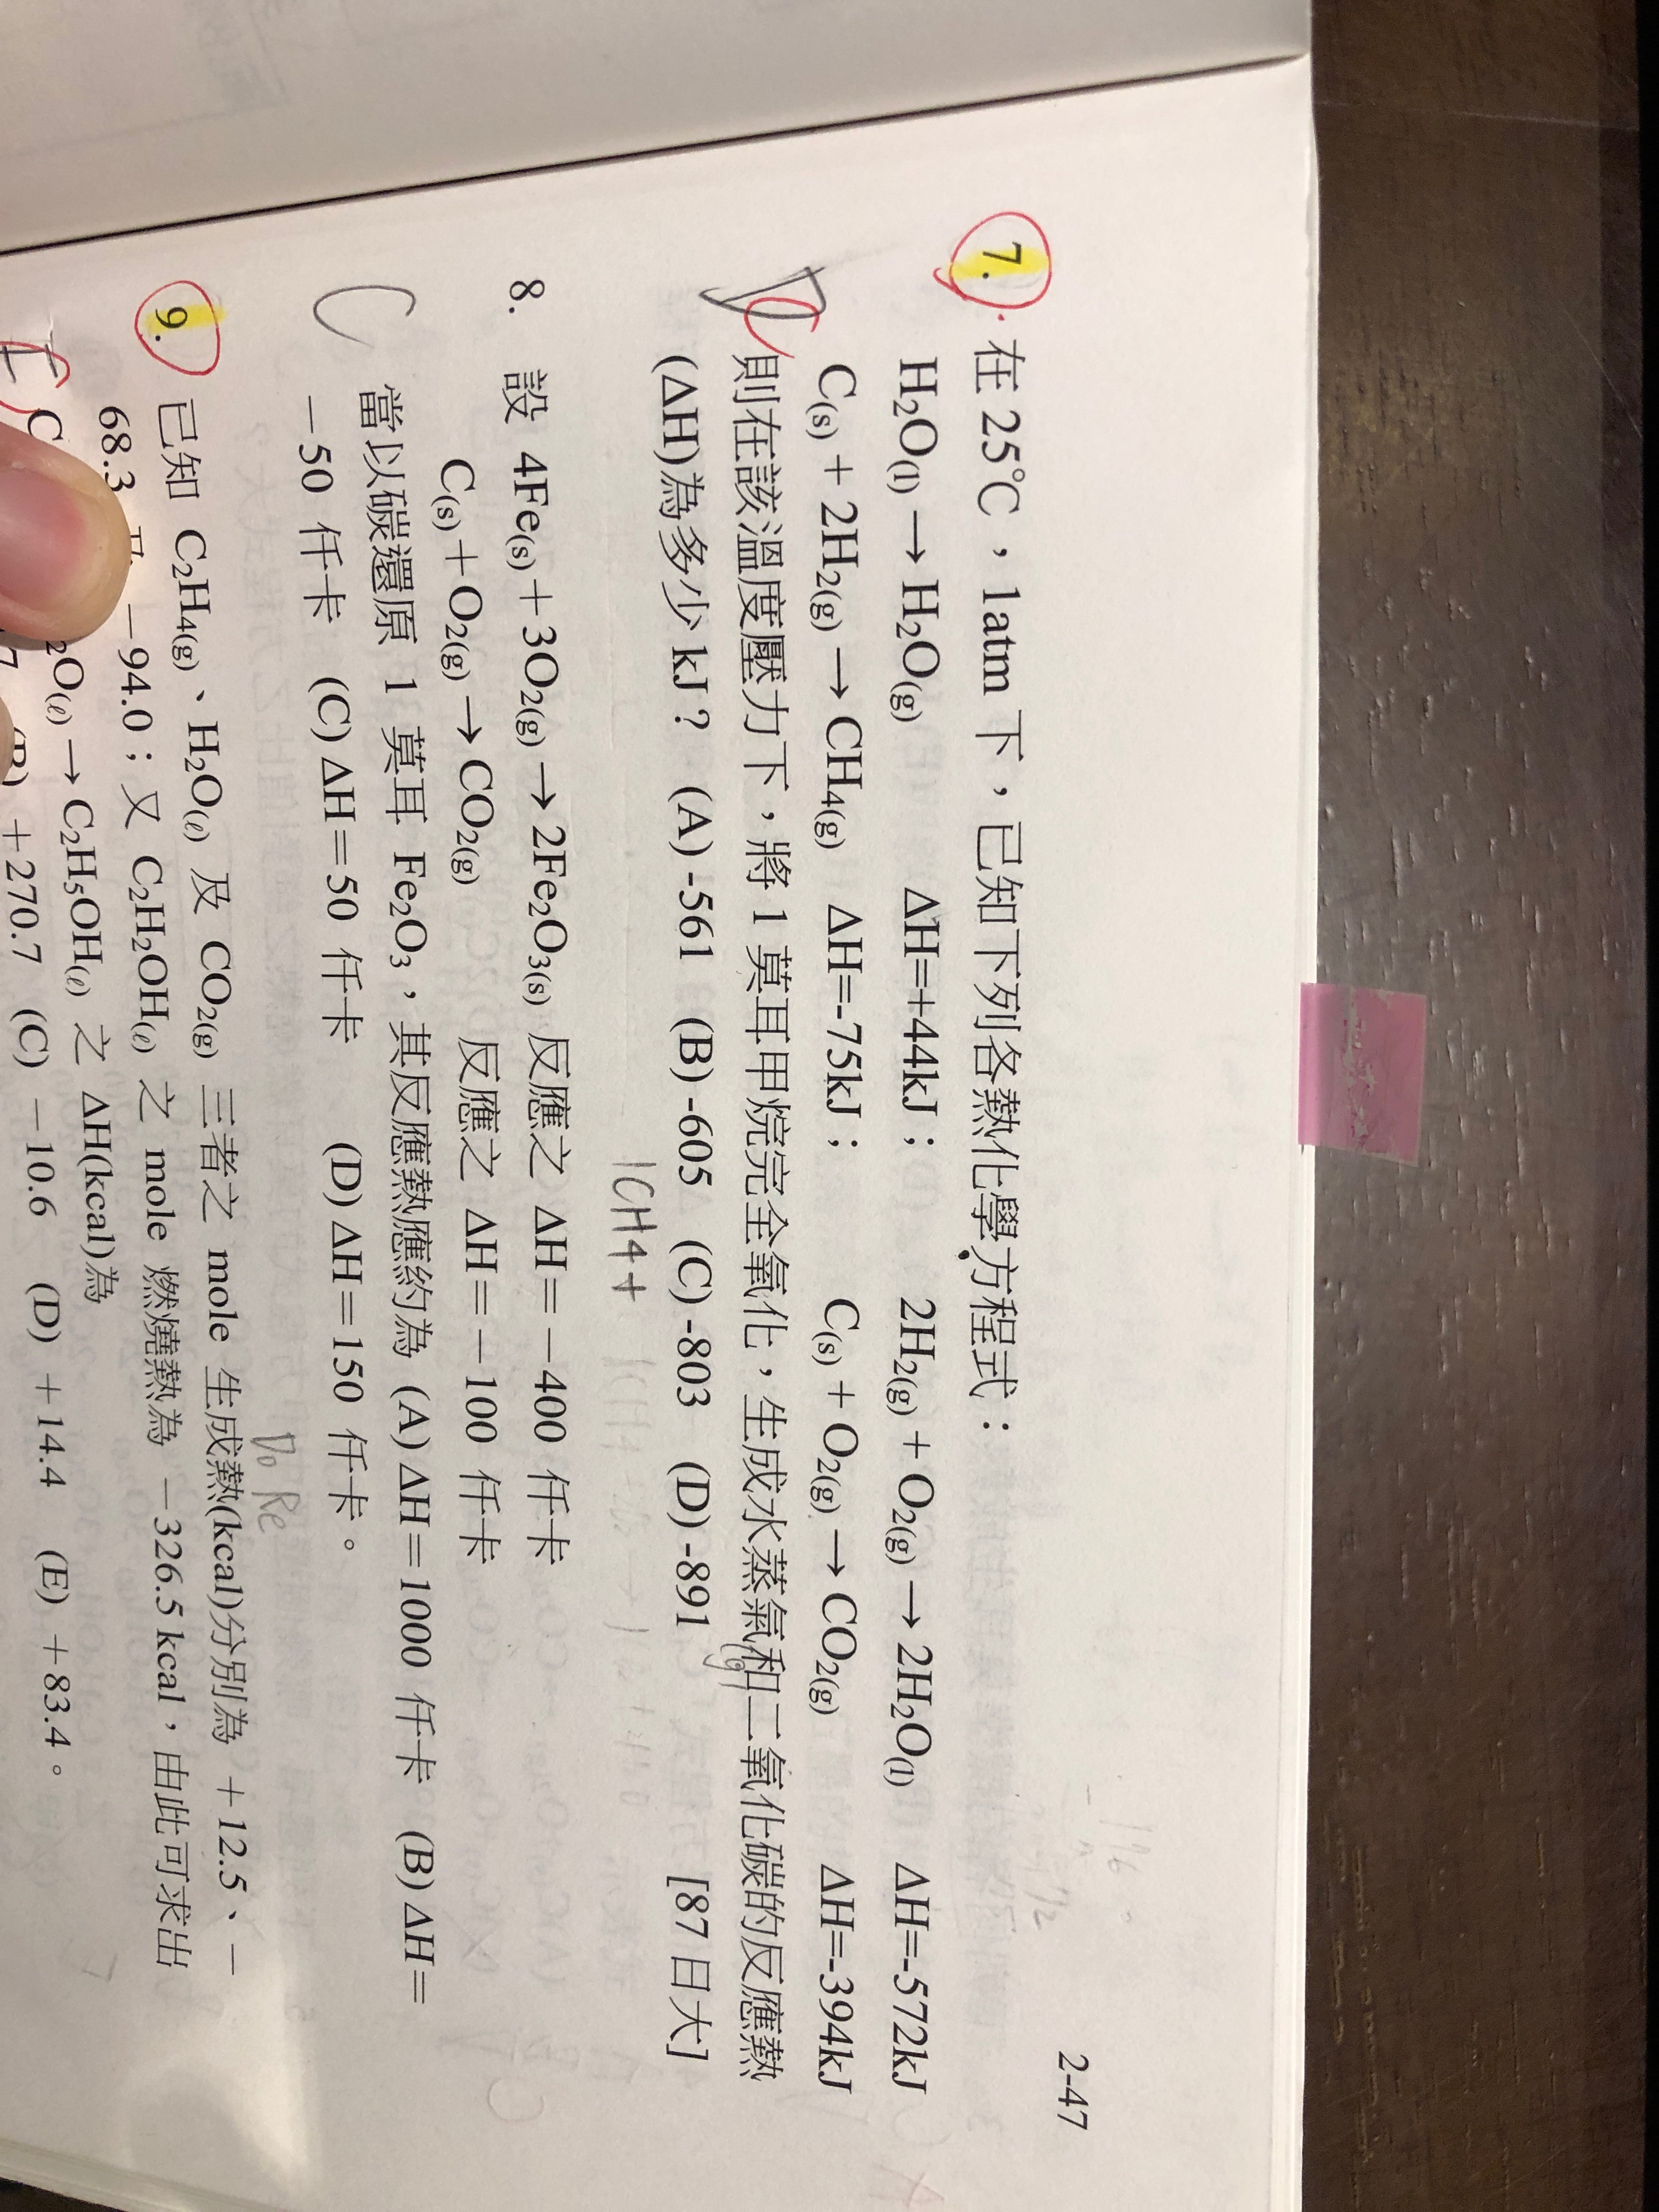 2-47
7. 在 25℃，1atm 下，已知下列各熱化學方程式：
H₂O(l) → H₂O(g) ΔH=+44kJ； 2H₂(g) + O₂(g) → 2H₂O(l) ΔH=-572kJ
C(s) + 2H₂(g) → CH₄(g) ΔH=-75kJ； C(s) + O₂(g) → CO₂(g) ΔH=-394kJ
則在該溫度壓力下，將 1 莫耳甲烷完全氧化，生成水蒸氣和二氧化碳的反應熱
(ΔH)為多少 kJ？ (A) -561 (B) -605 (C) -803 (D) -891 [87 日大]
1CH4+
8. 設 4Fe(s)＋3O₂(g) → 2Fe₂O₃(s) 反應之 ΔH＝－400 仟卡
C(s)＋O₂(g) → CO₂(g) 反應之 ΔH＝－100 仟卡
當以碳還原 1 莫耳 Fe₂O₃，其反應熱應約為 (A) ΔH＝1000 仟卡 (B) ΔH＝
C
－50 仟卡 (C) ΔH＝50 仟卡 (D) ΔH＝150 仟卡。
9. 已知 C₂H₄(g)、H₂O(ℓ) 及 CO₂(g) 三者之 mole 生成熱(kcal)分別為 ＋12.5、－
68.3 －94.0；又 C₂H₂OH(ℓ) 之 mole 燃燒熱為 －326.5 kcal，由此可求出
C ₂O(ℓ) → C₂H₅OH(ℓ) 之 ΔH(kcal)為
＋270.7 (C) －10.6 (D) ＋14.4 (E) ＋83.4。